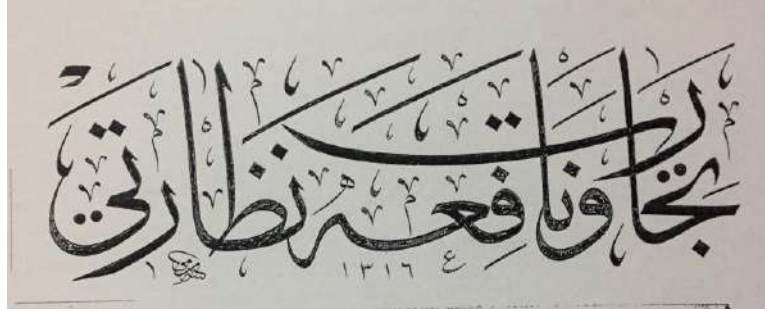 تجارت و نافعه نظارتی
١٣١٦